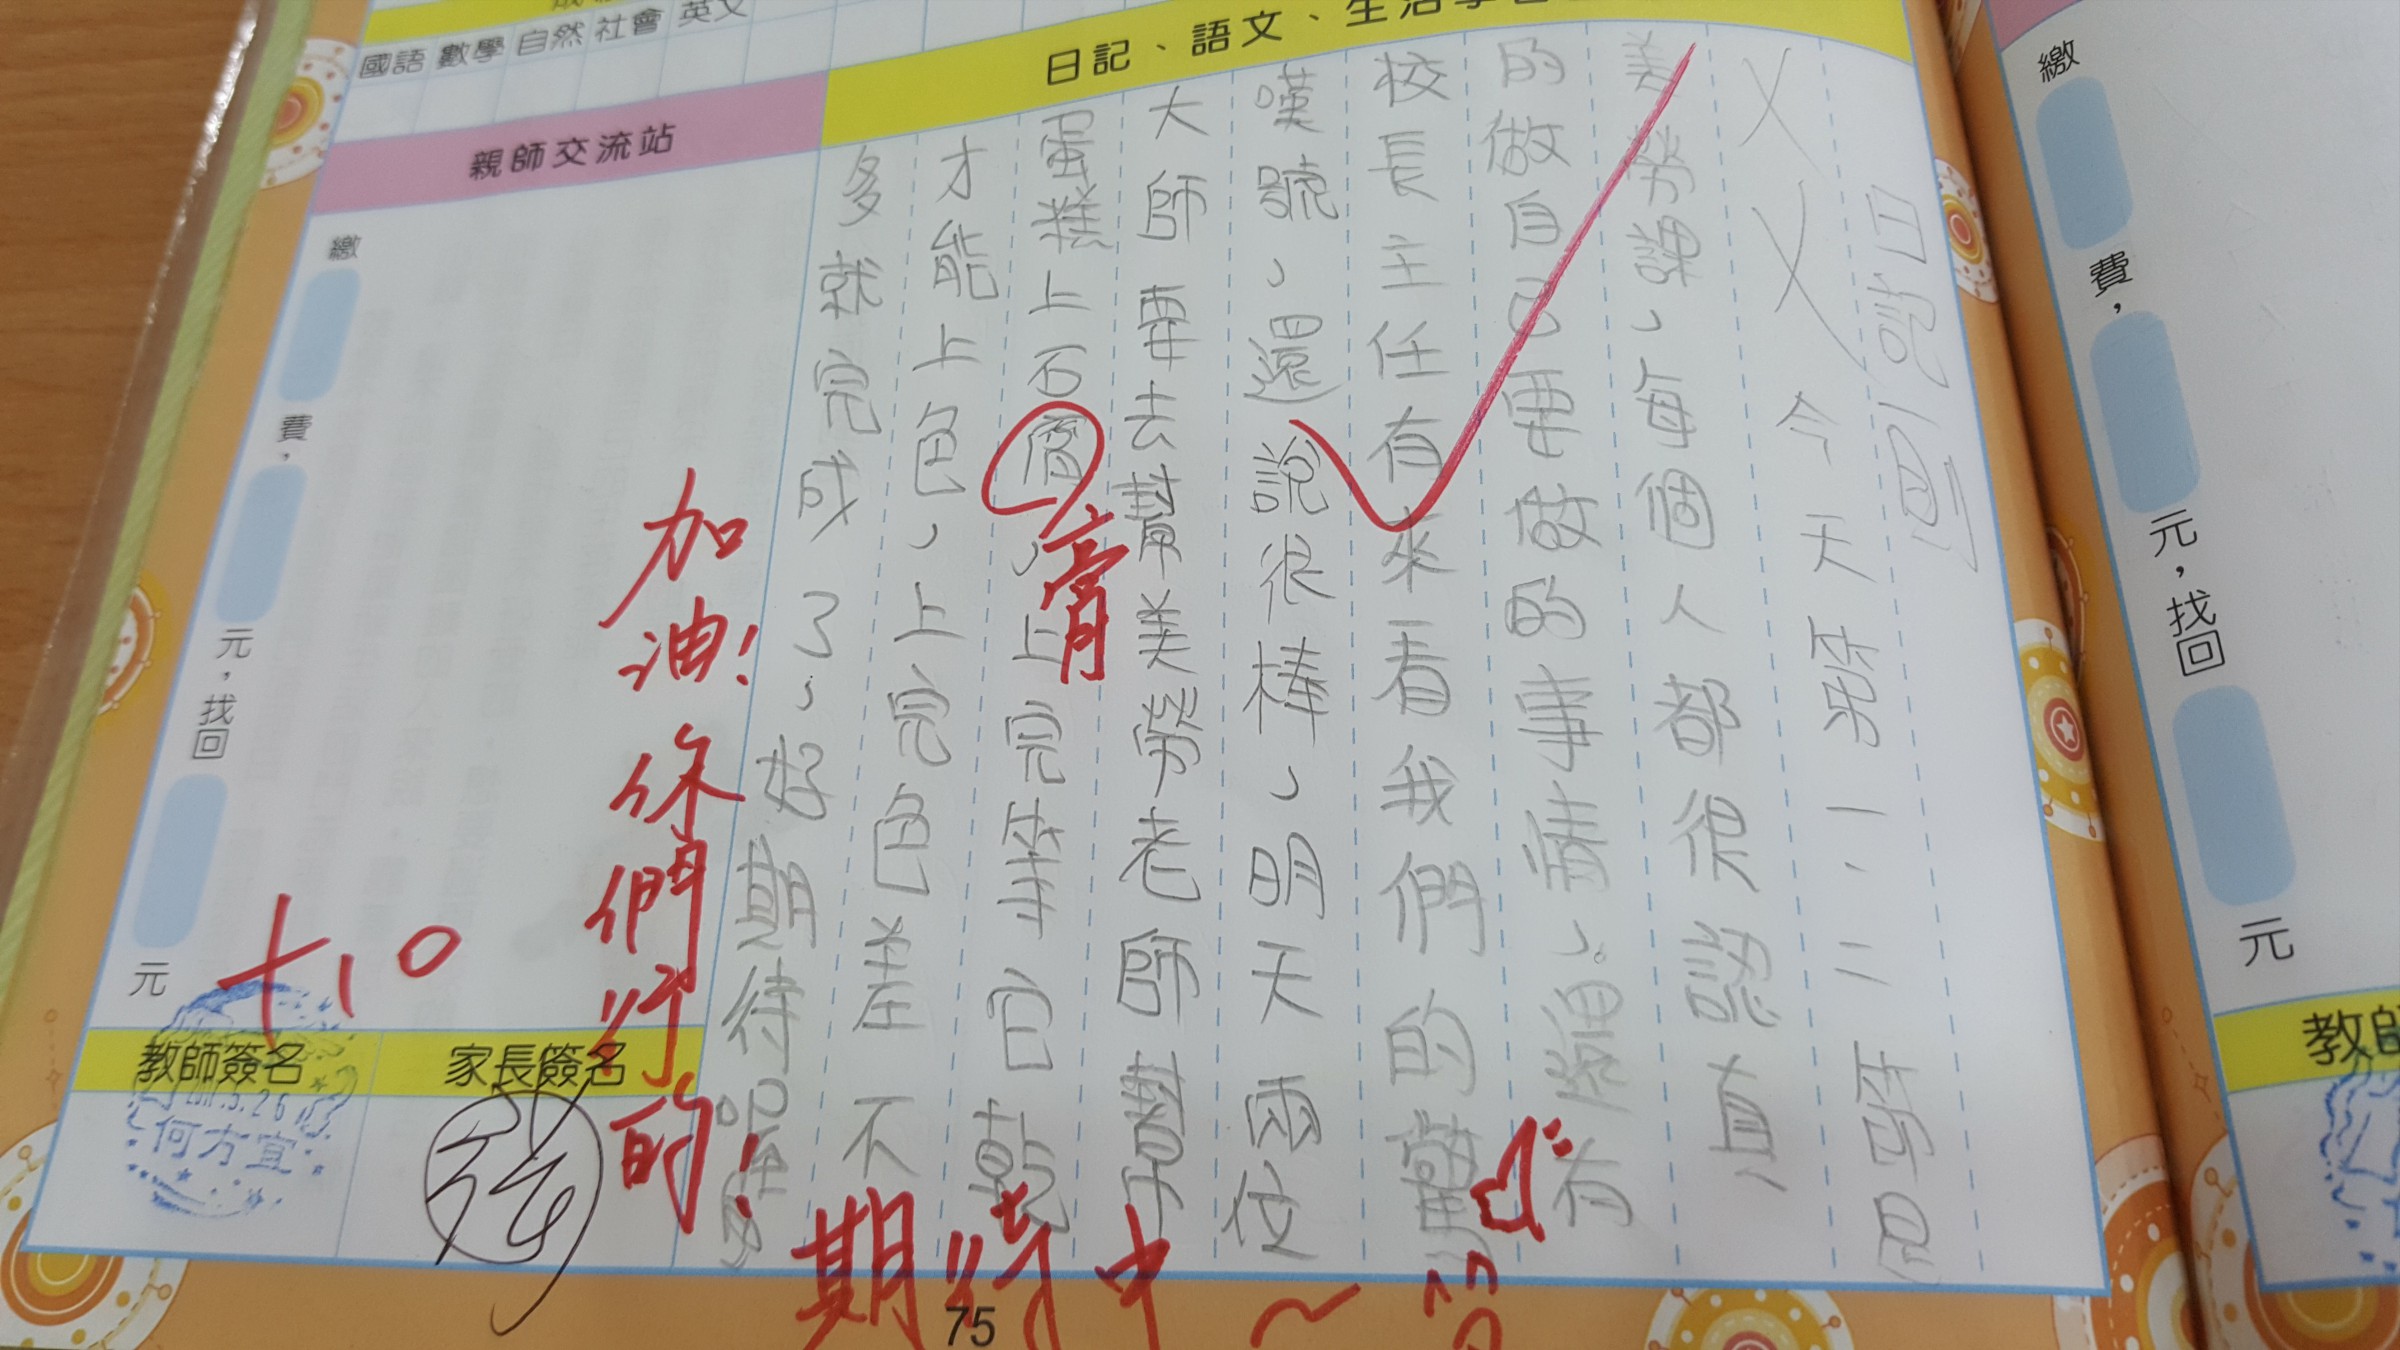 國語 數學 自然 社會 英文
日記、語文、生活學
日記一則
今天第一、二節是
美勞課，每個人都很認真
的做自己要做的事情，還有
校長主任有來看我們的
嘆號，還說很棒，明天兩位
大師要去幫美勞老師幫
蛋糕上石膏，上完等它乾
才能上色，上完色差不
多就完成了，好期待喔
膏
親師交流站
繳 費， 元，找回 元
加油！你們行的！
期待中～
+10
教師簽名
家長簽名
何方宜
張
75
繳 費， 元，找回 元
教師